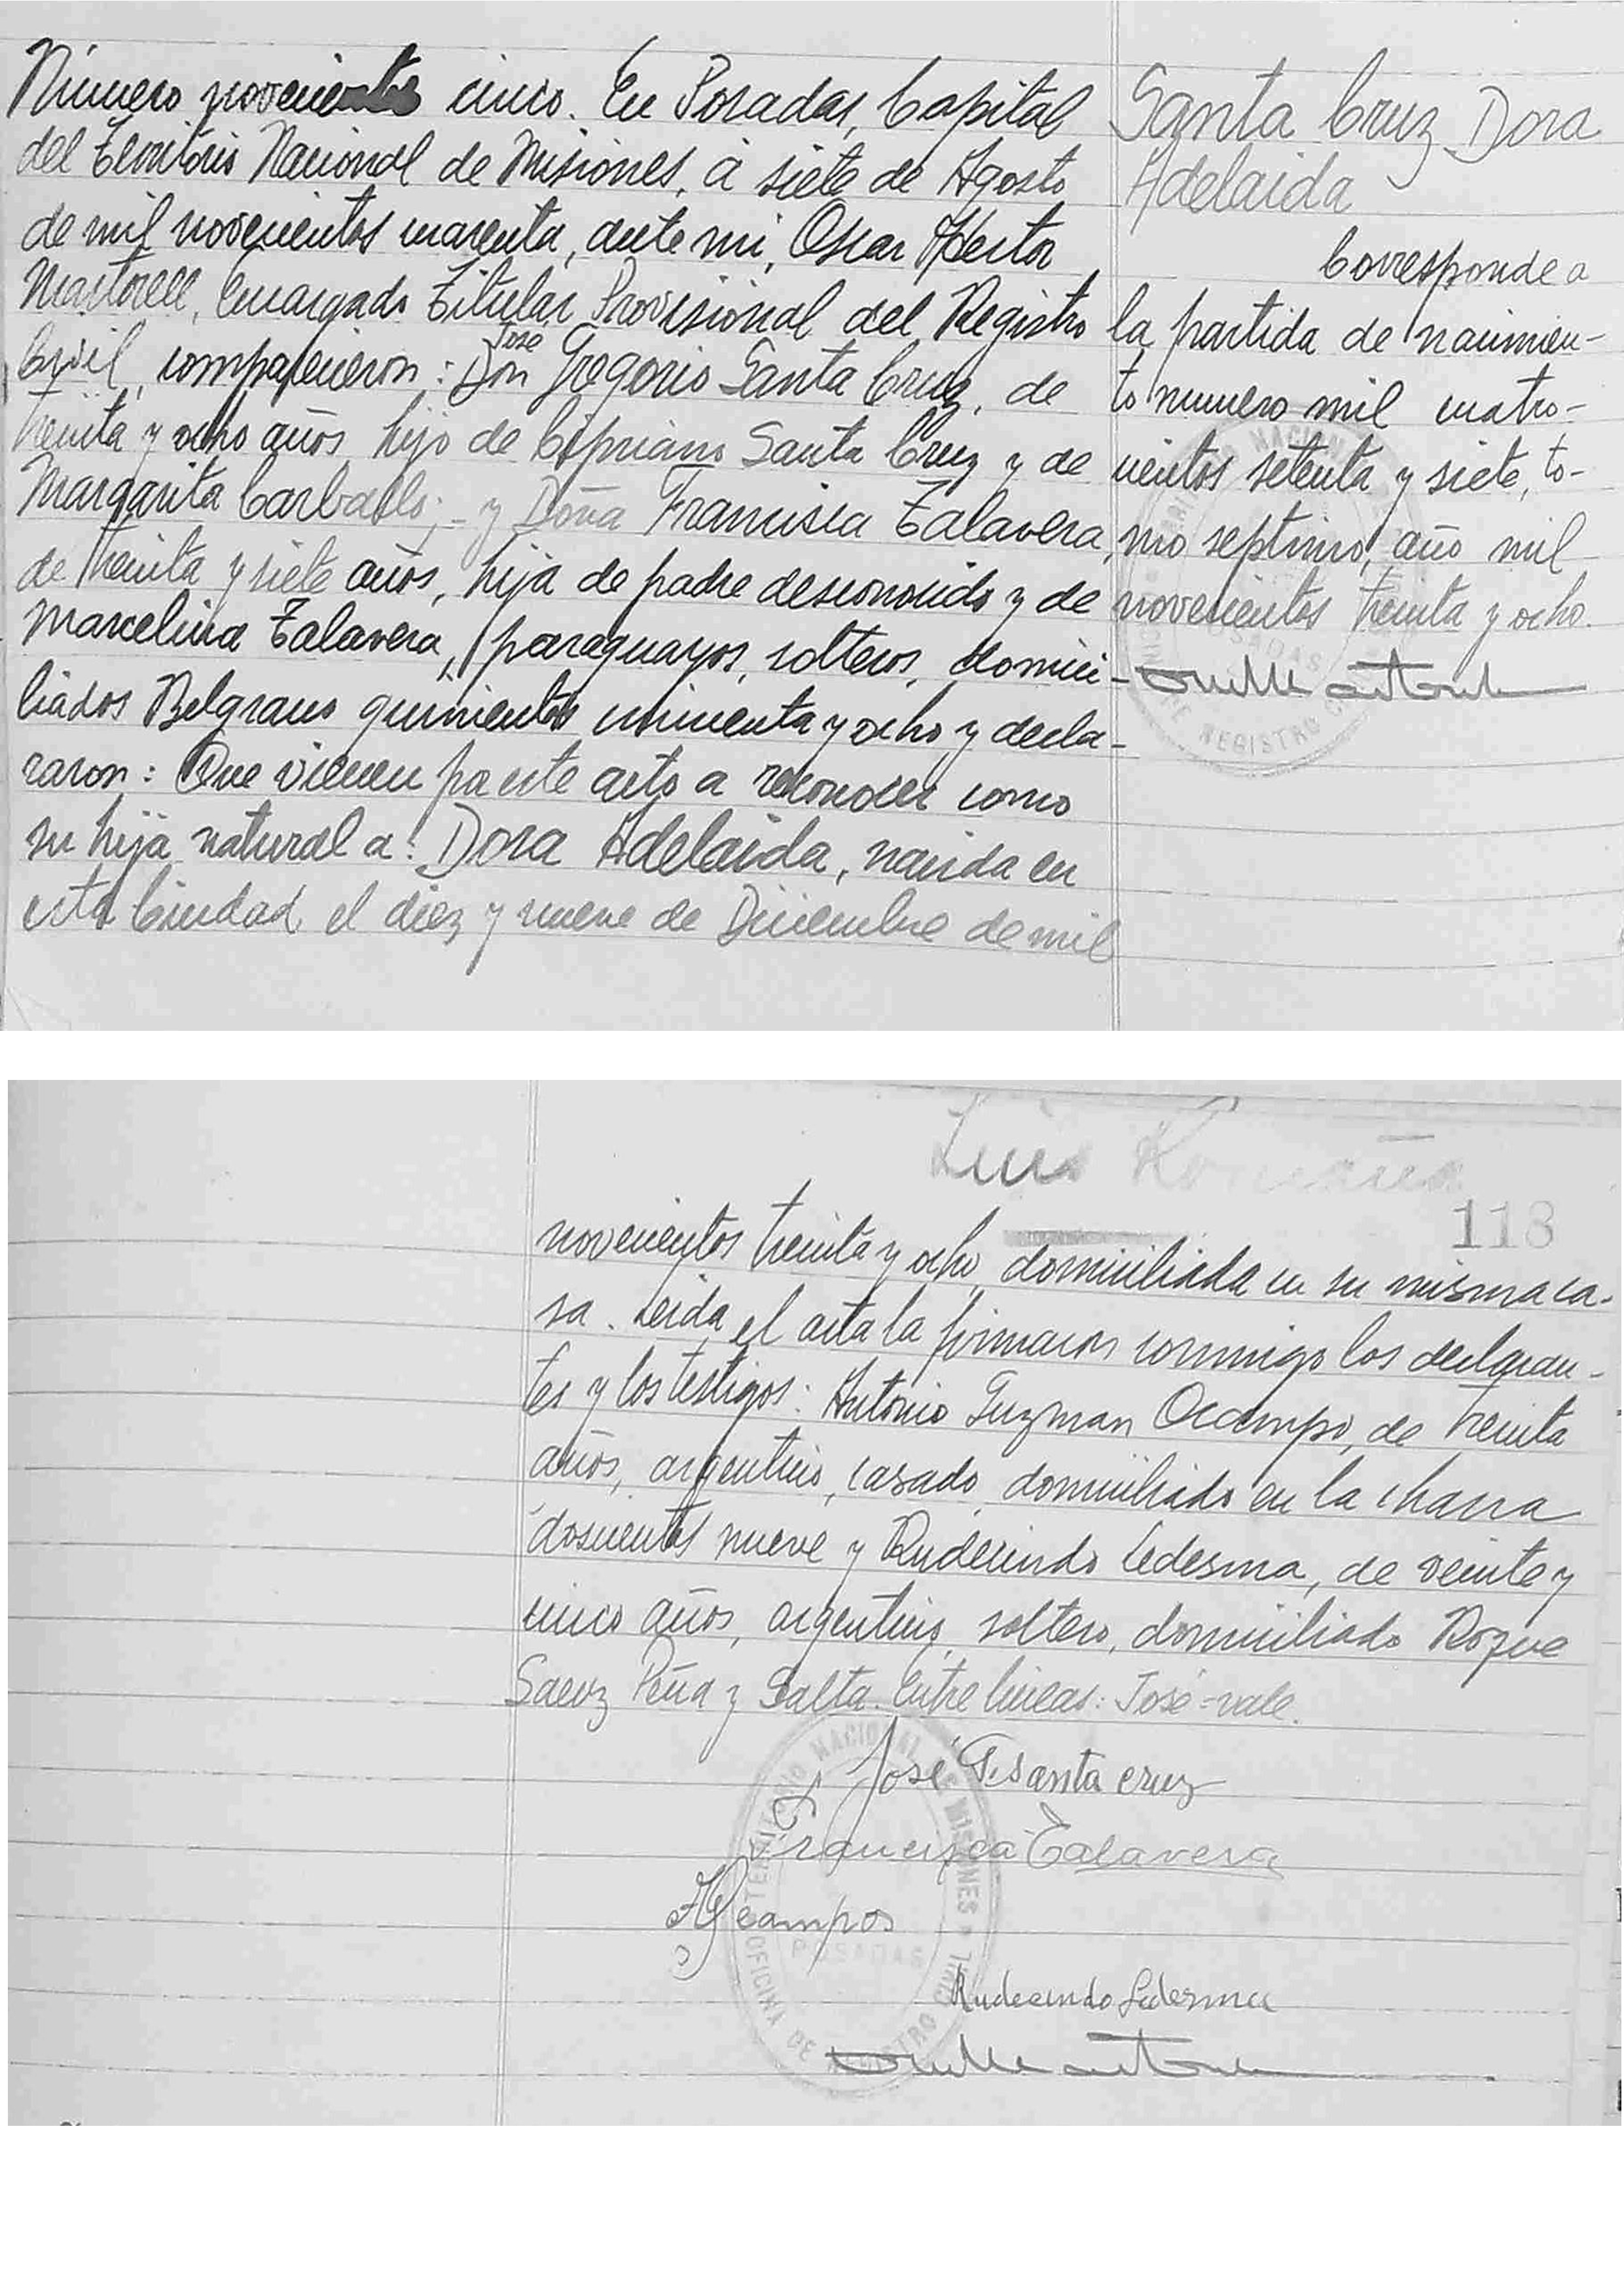 Número novecientos cinco. En Posadas, Capital
del Territorio Nacional de Misiones, á siete de Agosto
de mil novecientos cuarenta, ante mi, Oscar Hector
Martorell, Encargado Titular Provisional del Registro
José
Civil, comparecieron: Don Gregorio Santa Cruz, de
treinta y ocho años hijo de Cipriano Santa Cruz y de
Margarita Carballo; - y Doña Francisca Talavera,
de treinta y siete años, hija de padre desconocido y de
Marcelina Talavera, paraguayos, solteros, domici-
liados Belgrano quinientos cincuenta y ocho y decla-
raron: Que vienen por este acto a reconocer como
su hija natural a: Dora Adelaida, nacida en
esta Ciudad el diez y nueve de Diciembre de mil
Santa Cruz Dora
Adelaida
Corresponde a
la partida de nacimien-
to numero mil cuatro-
cientos setenta y siete, to-
mo septimo, año mil
novecientos treinta y ocho.
Luis
118
novecientos treinta y ocho, domiciliada en su misma ca-
sa. Leida el acta la firmaron conmigo los declaran-
tes y los testigos: Antonio Guzman Ocampo, de treinta
años, argentino, casado, domiciliado en la chacra
doscientos nueve y Rudecindo Ledesma, de veinte y
cinco años, argentino, soltero, domiciliado Roque
Saenz Peña y Salta. Entre lineas: José-vale.
José G. Santa cruz
Francisca Talavera
AOcampos
Rudecindo Ledesma
OFICINA DE REGISTRO CIVIL
TERRITORIO NACIONAL DE MISIONES
POSADAS